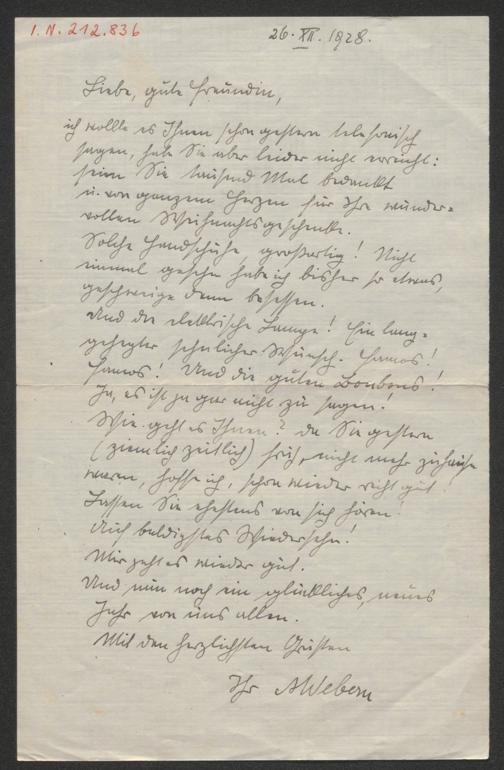 I. N. 212.836
26. XII. 1928.
Liebe, gute Freundin,
ich wollte es Ihnen schon gestern telefonisch
sagen, habe Sie aber leider nicht erreicht:
seien Sie tausend Mal bedankt
u. von ganzem Herzen für Ihre wunder-
vollen Weihnachtsgeschenke.
Solche Handschuhe, großartig! Nicht
einmal gesehn habe ich bisher so etwas,
geschweige denn besessen.
Und die elektrische Lampe! Ein lang-
gehegter sehnlicher Wunsch. Famos!
Famos! Und die guten Bonbons!
Ja, es ist ja gar nicht zu sagen!
Wie geht es Ihnen? Da Sie gestern
(ziemlich zeitlich) früh, nicht mehr zuhause
waren, hoffe ich, schon wieder recht gut!
Lassen Sie ehestens von sich hören!
Auf baldigstes Wiedersehn!
Mir geht es wieder gut.
Und nun noch ein glückliches, neues
Jahr von uns allen.
Mit den herzlichsten Grüßen
Ihr AWebern